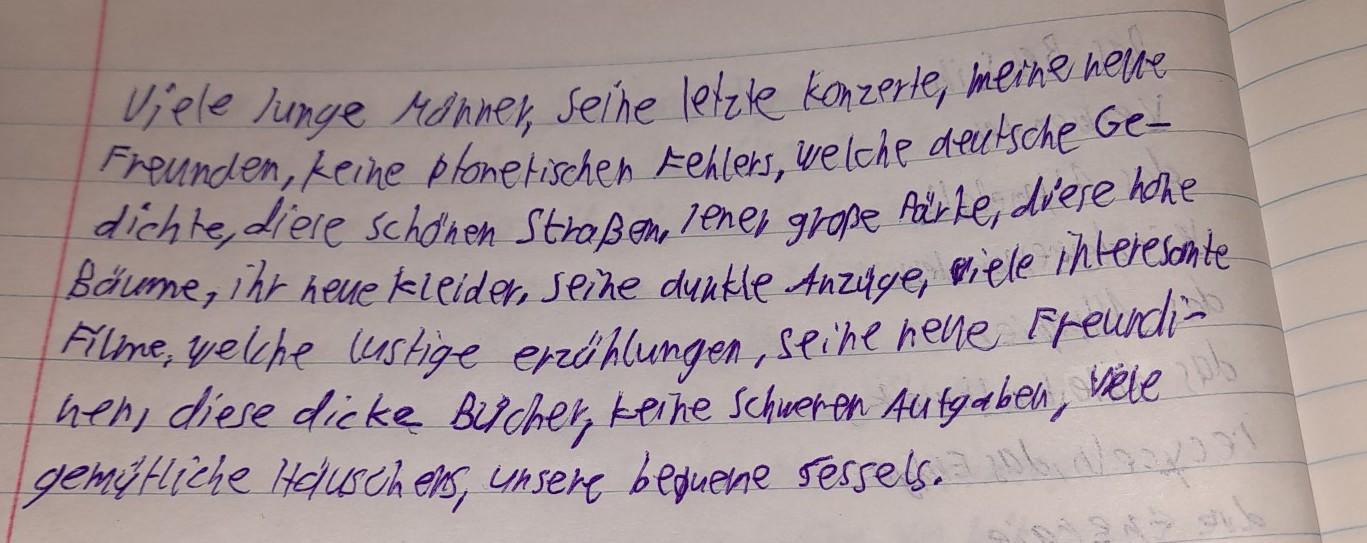 Viele junge Männer, seine letzte Konzerte, meine neue
Freunden, keine pfonetischen Fehlers, welche deutsche Ge-
dichte, diese schönen Straßen, jener große Pärke, diese hohe
Bäume, ihr neue kleider, seine dunkle Anzüge, viele interesante
Filme, welche lustige erzählungen, seine neue Freundi-
nen, diese dicke Bücher, keine schweren Aufgaben, viele
gemütliche Häuschens, unsere bequeme Sessels.